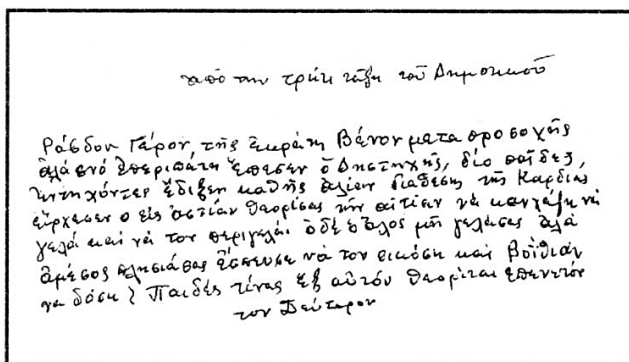 ἀπὸ την τρίτη τάξη τοῦ Δημοτικοῦ
Ράβδον Γέρον, τῆς ἐκράτη Βένον μετα προσοχῆς
ἀλά ἐνό ἐπεριπάτη ἔπεσεν ὁ Δηστηχής, δίο παῖδες,
ἐντηχόντες ἔδιξεν καθῆς διάθεσης τῆς Καρδίας
εἴρχεσεν ο εἷς ἀστίαν θεορίσας τὴν αἰτίαν νὰ κανχάζη νὰ
γελᾶ καὶ νὰ τον περιγελᾶ. ὁ δέ ὁ ἄλος μῆ γελάσας ἀλά
ἀμέσος πλησιάσας ἔσπευσε νὰ τον σικόση καὶ Βοίθιαν
να δόση Παιδές τίνας ἐξ αὐτόν θεορῖται ἐπενετόν
τον Δεύτερον